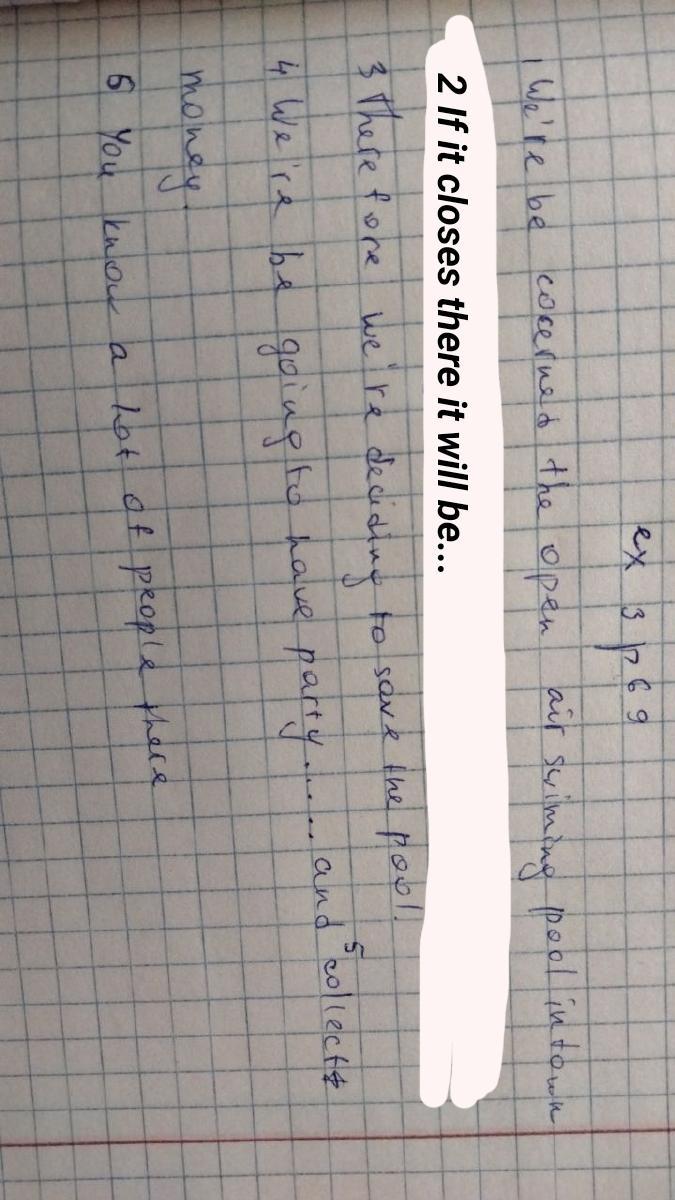 ex 3 p 69
1 We're be cocerned the open air swiming pool in town
2 If it closes there it will be...
3 Therefore we're deciding to save the pool.
4 We're be going to have party..... and 5 collect
money.
6 You know a lot of people there